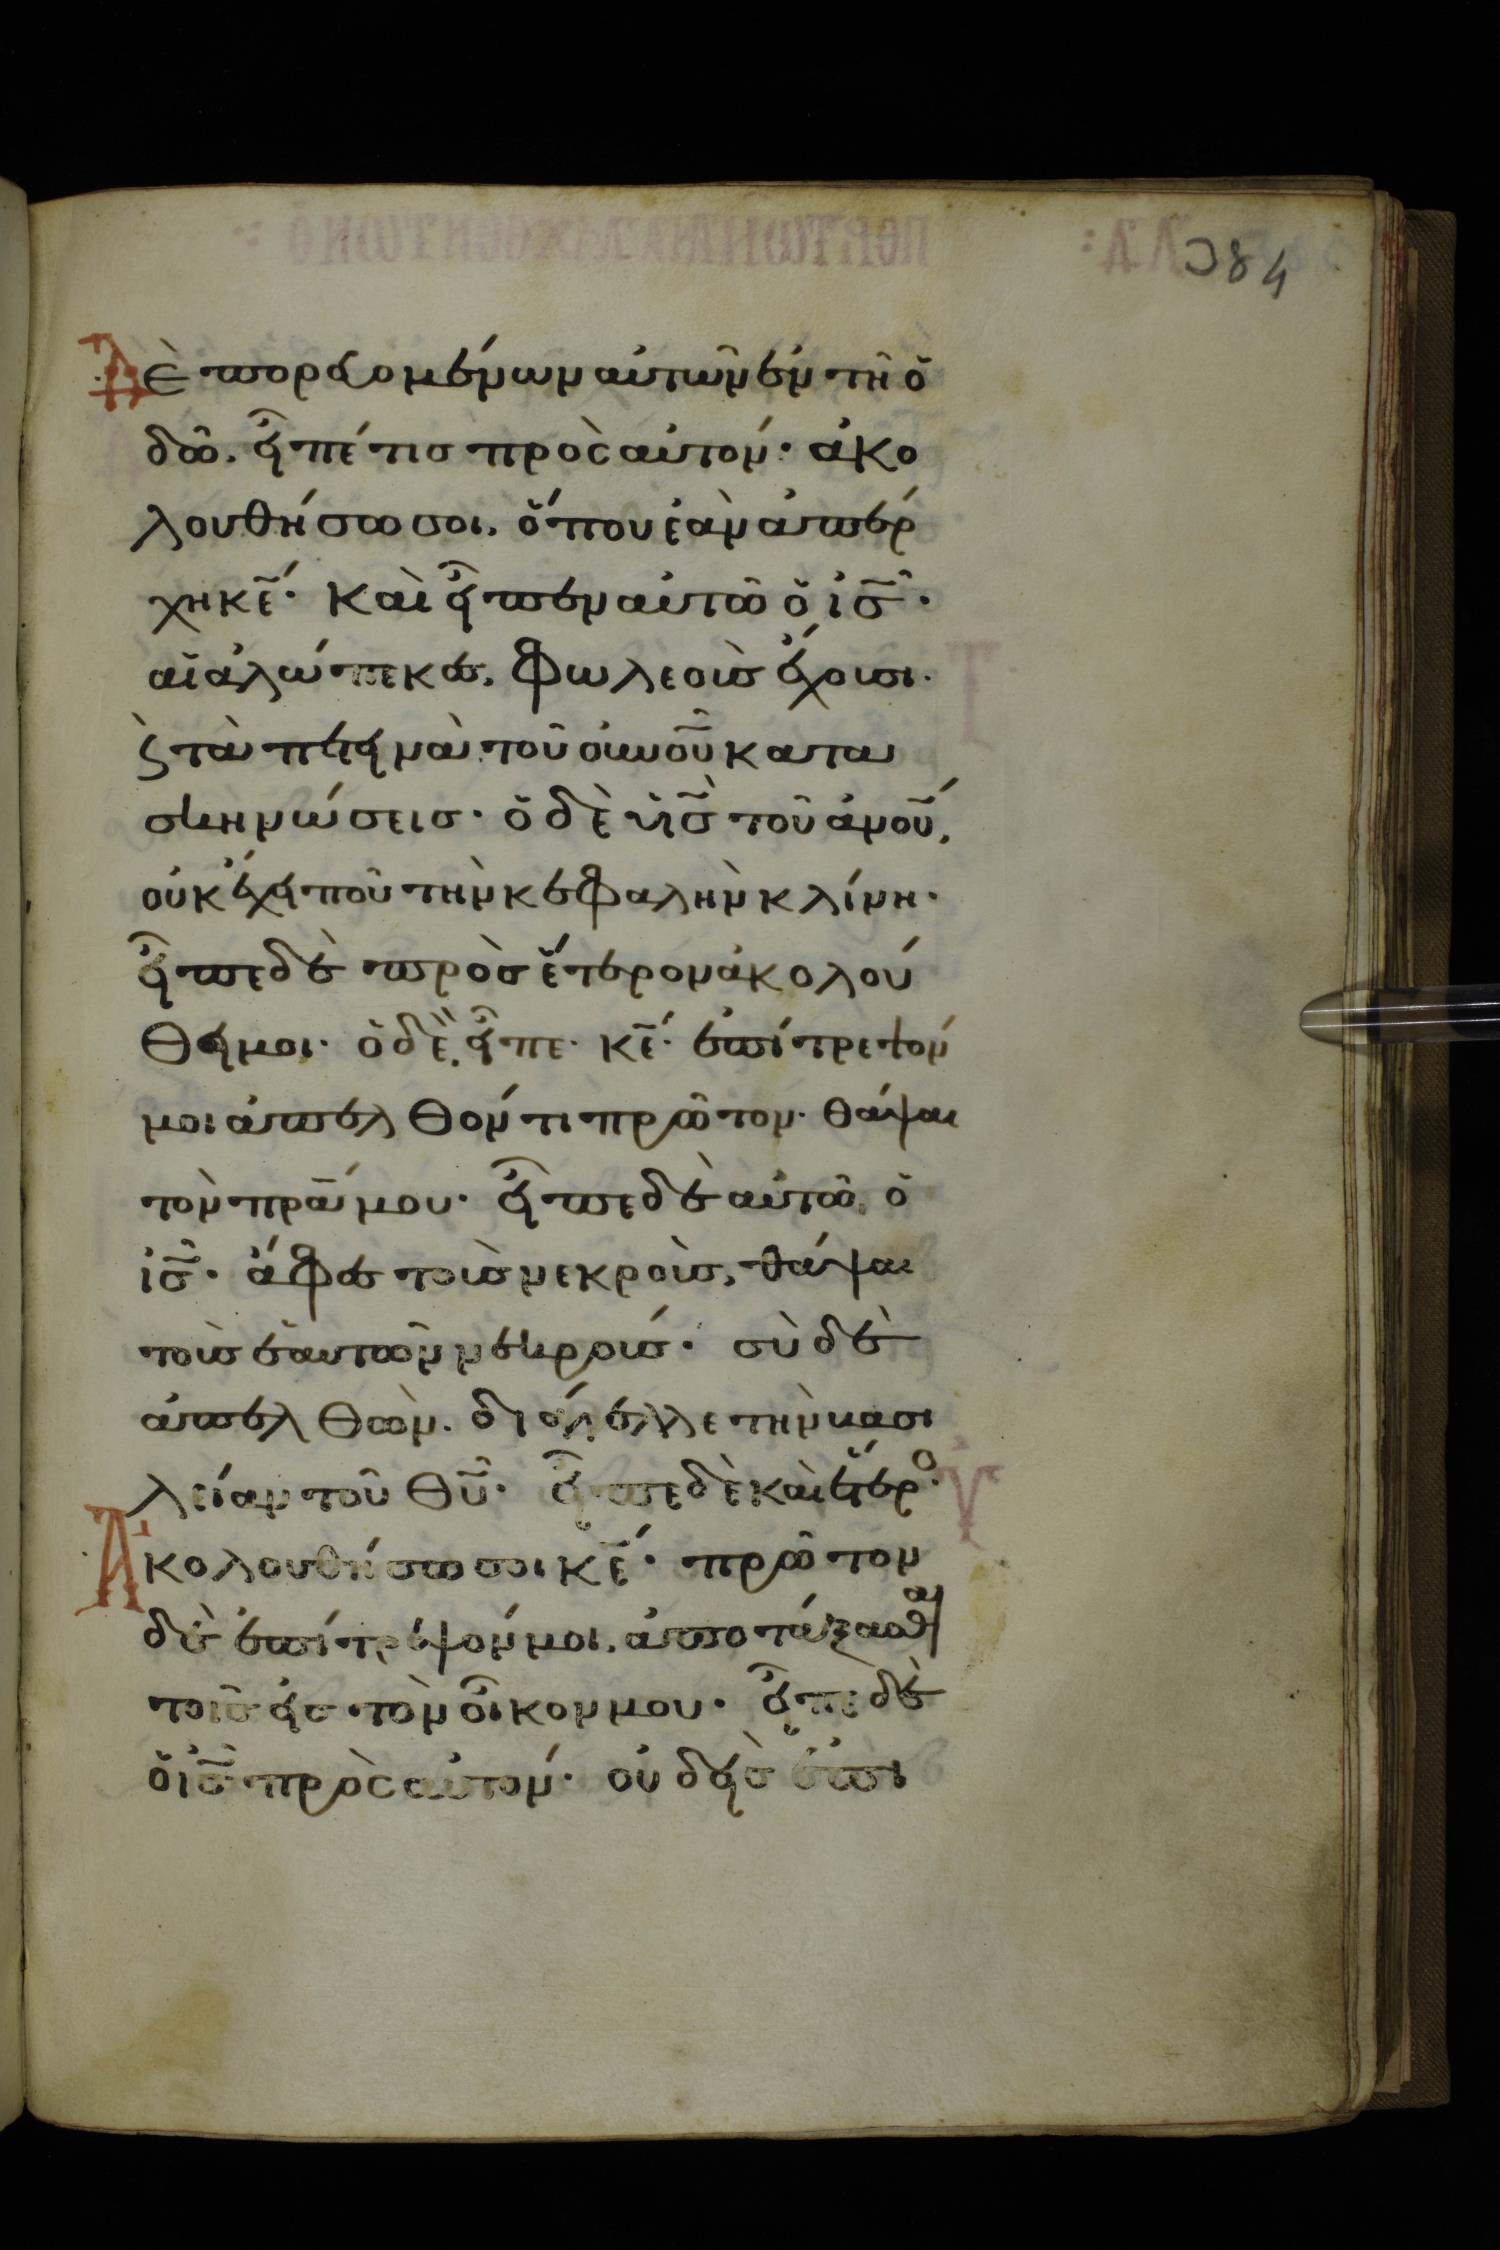 384
Δὲ πορευομένων αὐτῶν ἐν τῆ ὁ
δῶ. εἶπέ τις πρὸς αὐτόν· ἀκο
λουθήσω σοι, ὅπου ἐὰν ἀπέρ
χη κ̅ε̅· καὶ εἶπεν αὐτῶ ὁ ι̅ς̅·
αἱ ἀλώπεκες, φωλεοὺς ἔχουσι·
ϗ τὰ πετεινὰ τοῦ οὐνοῦ κατα
σκηνώσεις· ὁ δὲ υ̅ς̅ τοῦ ἀνου,
οὐκ ἔχει ποῦ τὴν κεφαλὴν κλίνη·
εἶπε δὲ πρὸς ἕτερον ἀκολού
θει μοι· ὁ δὲ, εἶπε· κ̅ε̅· ἐπίτρεψόν
μοι ἀπελθόντι πρῶτον· θάψαι
τὸν πρα μου· εἶπε δὲ αὐτῶ, ὁ
ι̅ς̅· ἄφες τοὺς νεκροὺς, θάψαι
τοὺς ἑαυτῶν νεκρούς· σὺ δὲ
ἀπελθὼν. διάγγελλε τὴν βασι
λείαν τοῦ θ̅υ̅· εἶπε δὲ καὶ ἕτερο·
Ἀκολουθήσω σοι κ̅ε̅· πρῶτον
δὲ ἐπίτρεψόν μοι, ἀποτάξασθαι
τοῖς εἰς τὸν οἶκον μου· εἶπε δὲ
ὁ ι̅ς̅ πρὸς αὐτόν· οὐδεὶς ἐπι